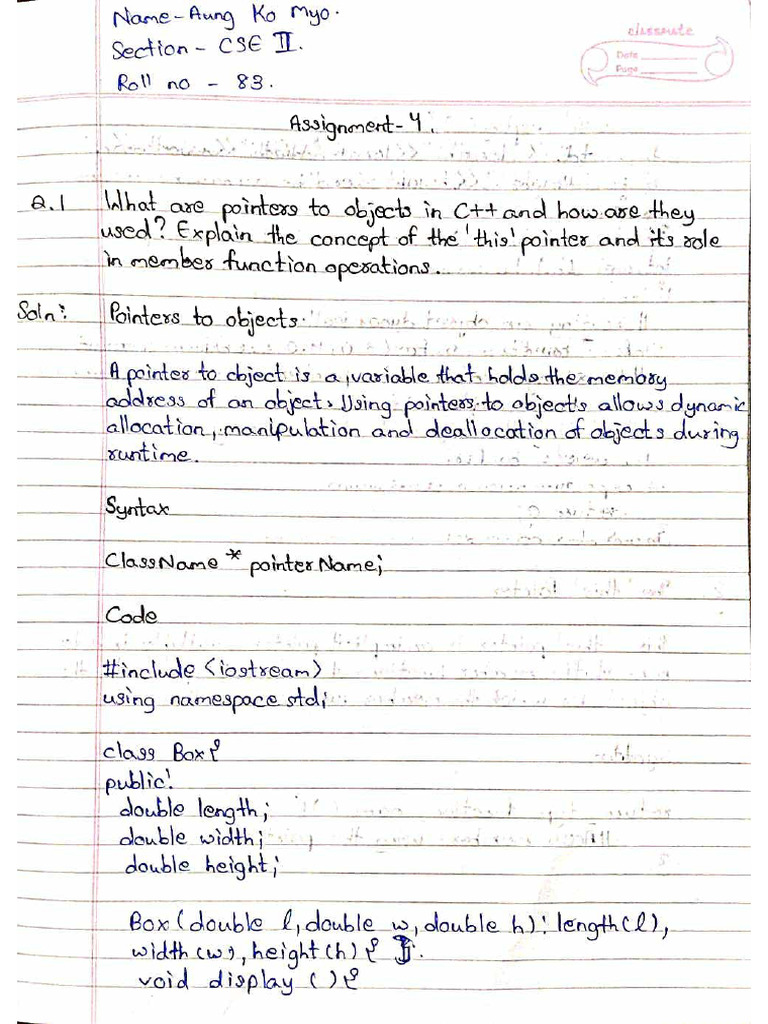 Name - Aung Ko Myo.
Section - CSE II.
Roll no - 83.
classmate
Date
Page
Assignment-4.
Q.1 What are pointers to objects in C++ and how are they
used? Explain the concept of the 'this' pointer and its role
in member function operations.
Soln: Pointers to objects.
A pointer to object is a variable that holds the memory
address of an object. Using pointers to objects allows dynamic
allocation, manipulation and deallocation of objects during
runtime.
Syntax
ClassName * pointerName;
Code
#include <iostream>
using namespace std;
class Box {
public:
double length;
double width;
double height;
Box (double l, double w, double h) : length(l),
width (w), height (h) { }
void display () {